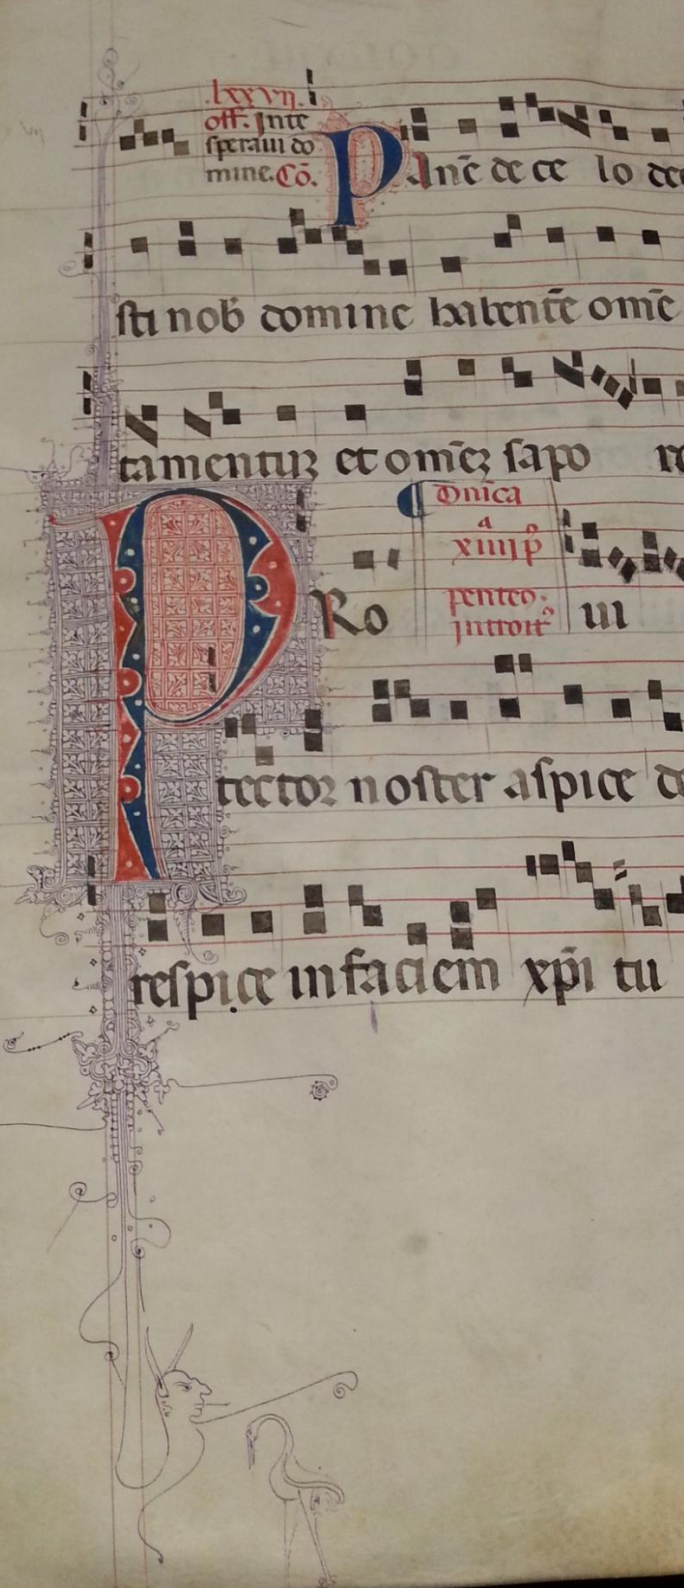 .lxxvij.
off. In te
speraui do
mine. Cō.
PAnē de ce lo de
sti nob domine habentē omē
tamentuȝ et omēȝ sapo re
Dnīca
a
xiiii p
penteo.
introit
PRo ui
tector noster aspice de
respice in faciem xp̄i tu